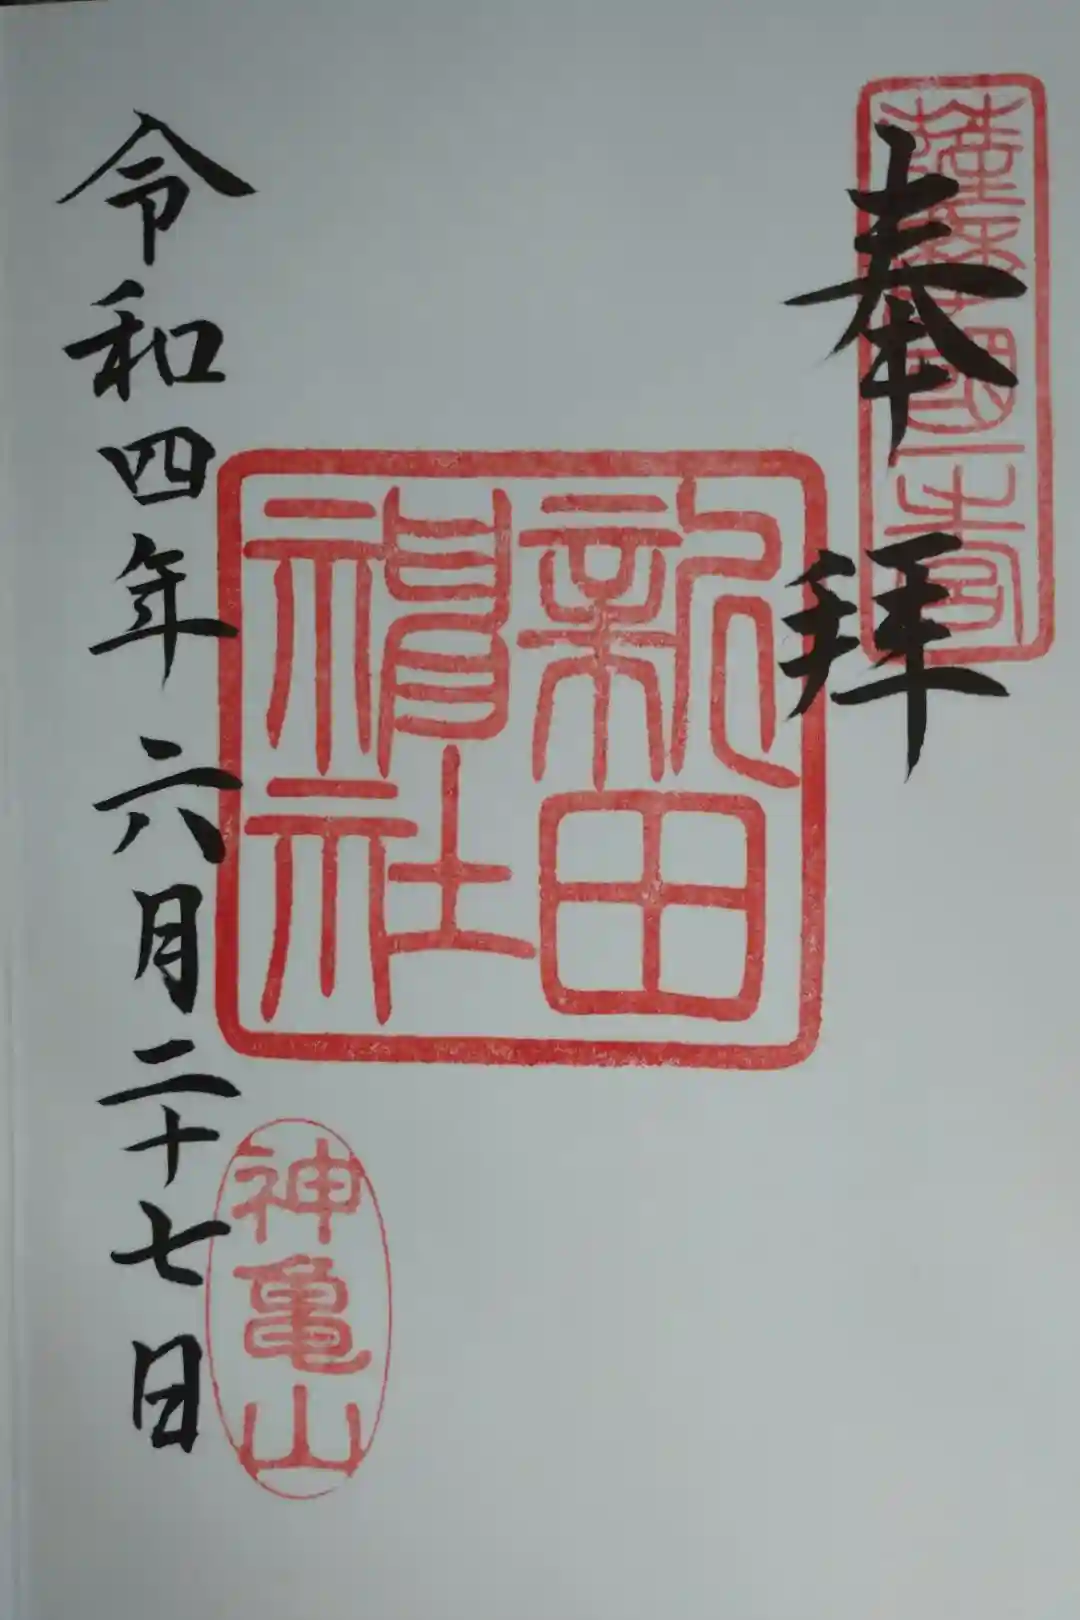 奉拝
薩摩國一宮
新田
神社
令和四年六月二十七日
神亀山